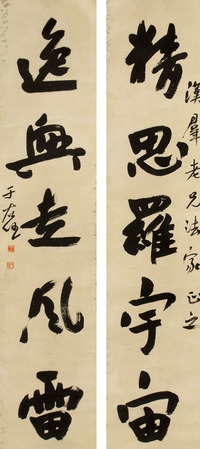 漢羣老兄法家正之
精思羅宇宙
逸興走風雷
于右任